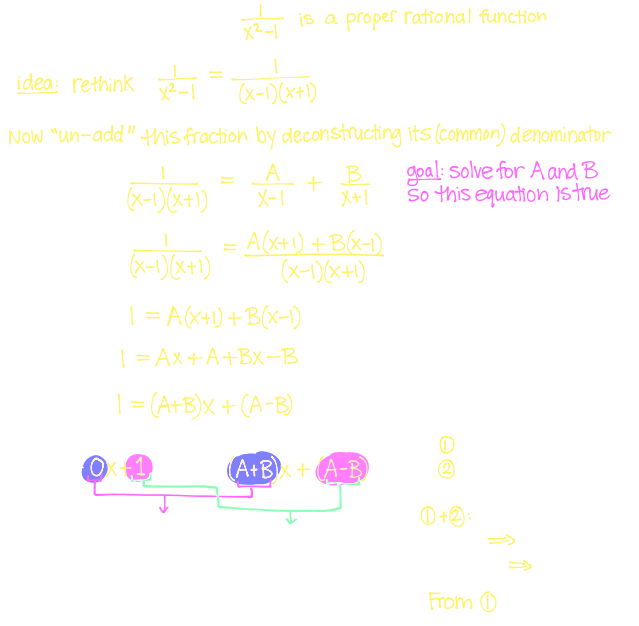 1/(x²-1) is a proper rational function
idea: rethink 1/(x²-1) = 1/((x-1)(x+1))
Now "un-add" this fraction by deconstructing its (common) denominator
1/((x-1)(x+1)) = A/(x-1) + B/(x+1)
goal: solve for A and B
so this equation is true
1/((x-1)(x+1)) = (A(x+1) + B(x-1))/((x-1)(x+1))
1 = A(x+1) + B(x-1)
1 = Ax + A + Bx - B
1 = (A+B)x + (A-B)
0x + 1 (A+B)x + (A-B)
①
②
① + ②:
⇒
⇒
From ①